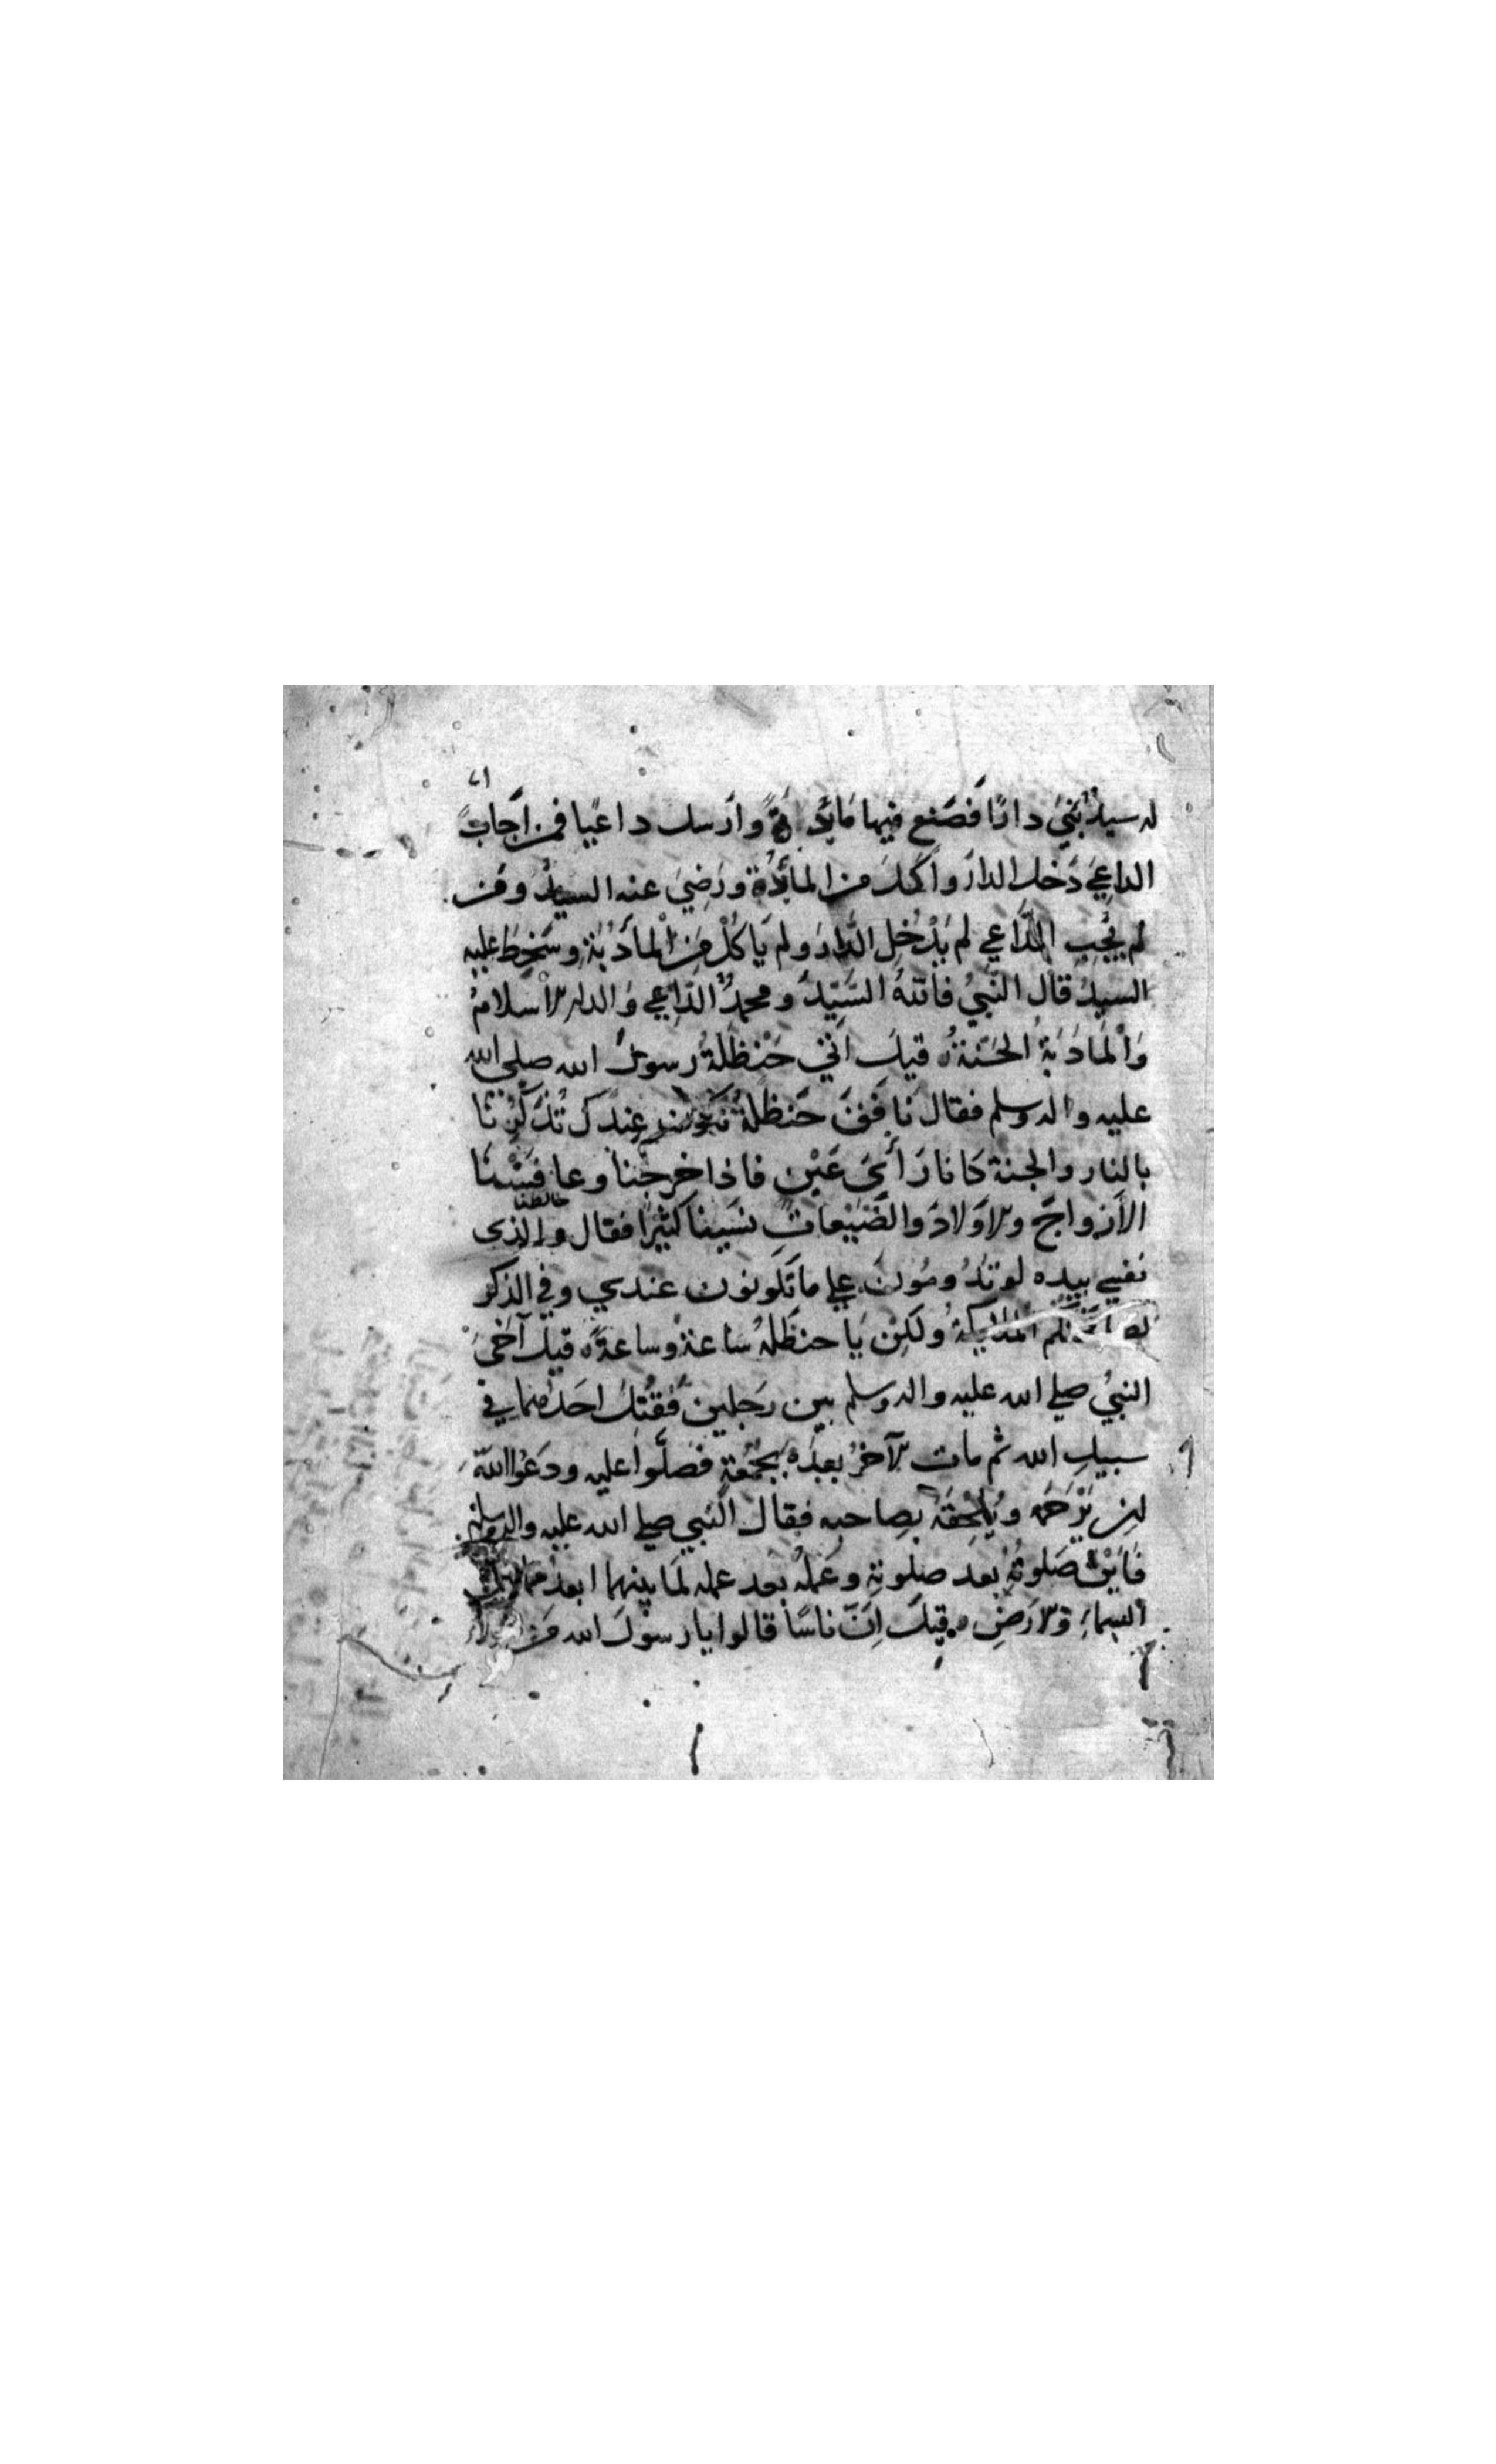 ٧١
له سيدٌ بَنَى دارًا فصَنع فيها مأدبةً وأرسل داعيًا فمن أجابَ
الداعِيَ دَخل الدارَ وأكلَ من المأدبة ورَضِيَ عنه السيدُ ومَن
لم يُجبِ الدَّاعي لم يَدْخُلِ الدَّارَ ولم يَاكُلْ مِنَ الْمأدُبَةِ وسَخِطَ عليه
السيدُ قال النَّبيُ فاللهُ السَّيِّدُ ومحمدٌ الدَّاعي وَالدار الاسلامُ
وَالْمَادَبَةُ الجَنةُ ه قيلَ اتى حَنْظَلةُ رسولَ الله صلى الله
عليه واله وسلم فقال نافَقَ حَنظَلةُ عندك تُذَكِّرُنا
بالنار والجنة كانا رَأيَ عَيْنٍ فاذا خرجْنا وعافَسْنا
خالطنا
الأزواجَ والاوَلادَ والضَّيْعاتِ نَسينا كثيرًا فقال والذى
نفسي بيده لو تَدُومُونَ على ما تكونون عندي وفي الذكر
الملايكةُ ولكِنْ يا حنظَلةُ سَاعةً وساعةً ه قيل آخَى
النبيُ صلى الله عليه واله وسلم بين رَجلين فقُتلَ احَدُهما في
سبيلِ الله ثم مات الآخرُ بعدَه بجُمْعَةٍ فصَلَّوا عليه ودَعَوُا اللهَ
ان يَرْحَمَه ويُلْحِقَهُ بصاحبه فقال النبي صلى الله عليه واله وسلم
فَايْنَ صَلوتُهُ بعد صلوتِهِ وعَملُه بعد عمله لَمَا بينهما ابعدُ مما بين
السماءِ والارَضِ ه قيلَ اِنّ ناسًا قالوا يا رسُولَ الله مَن